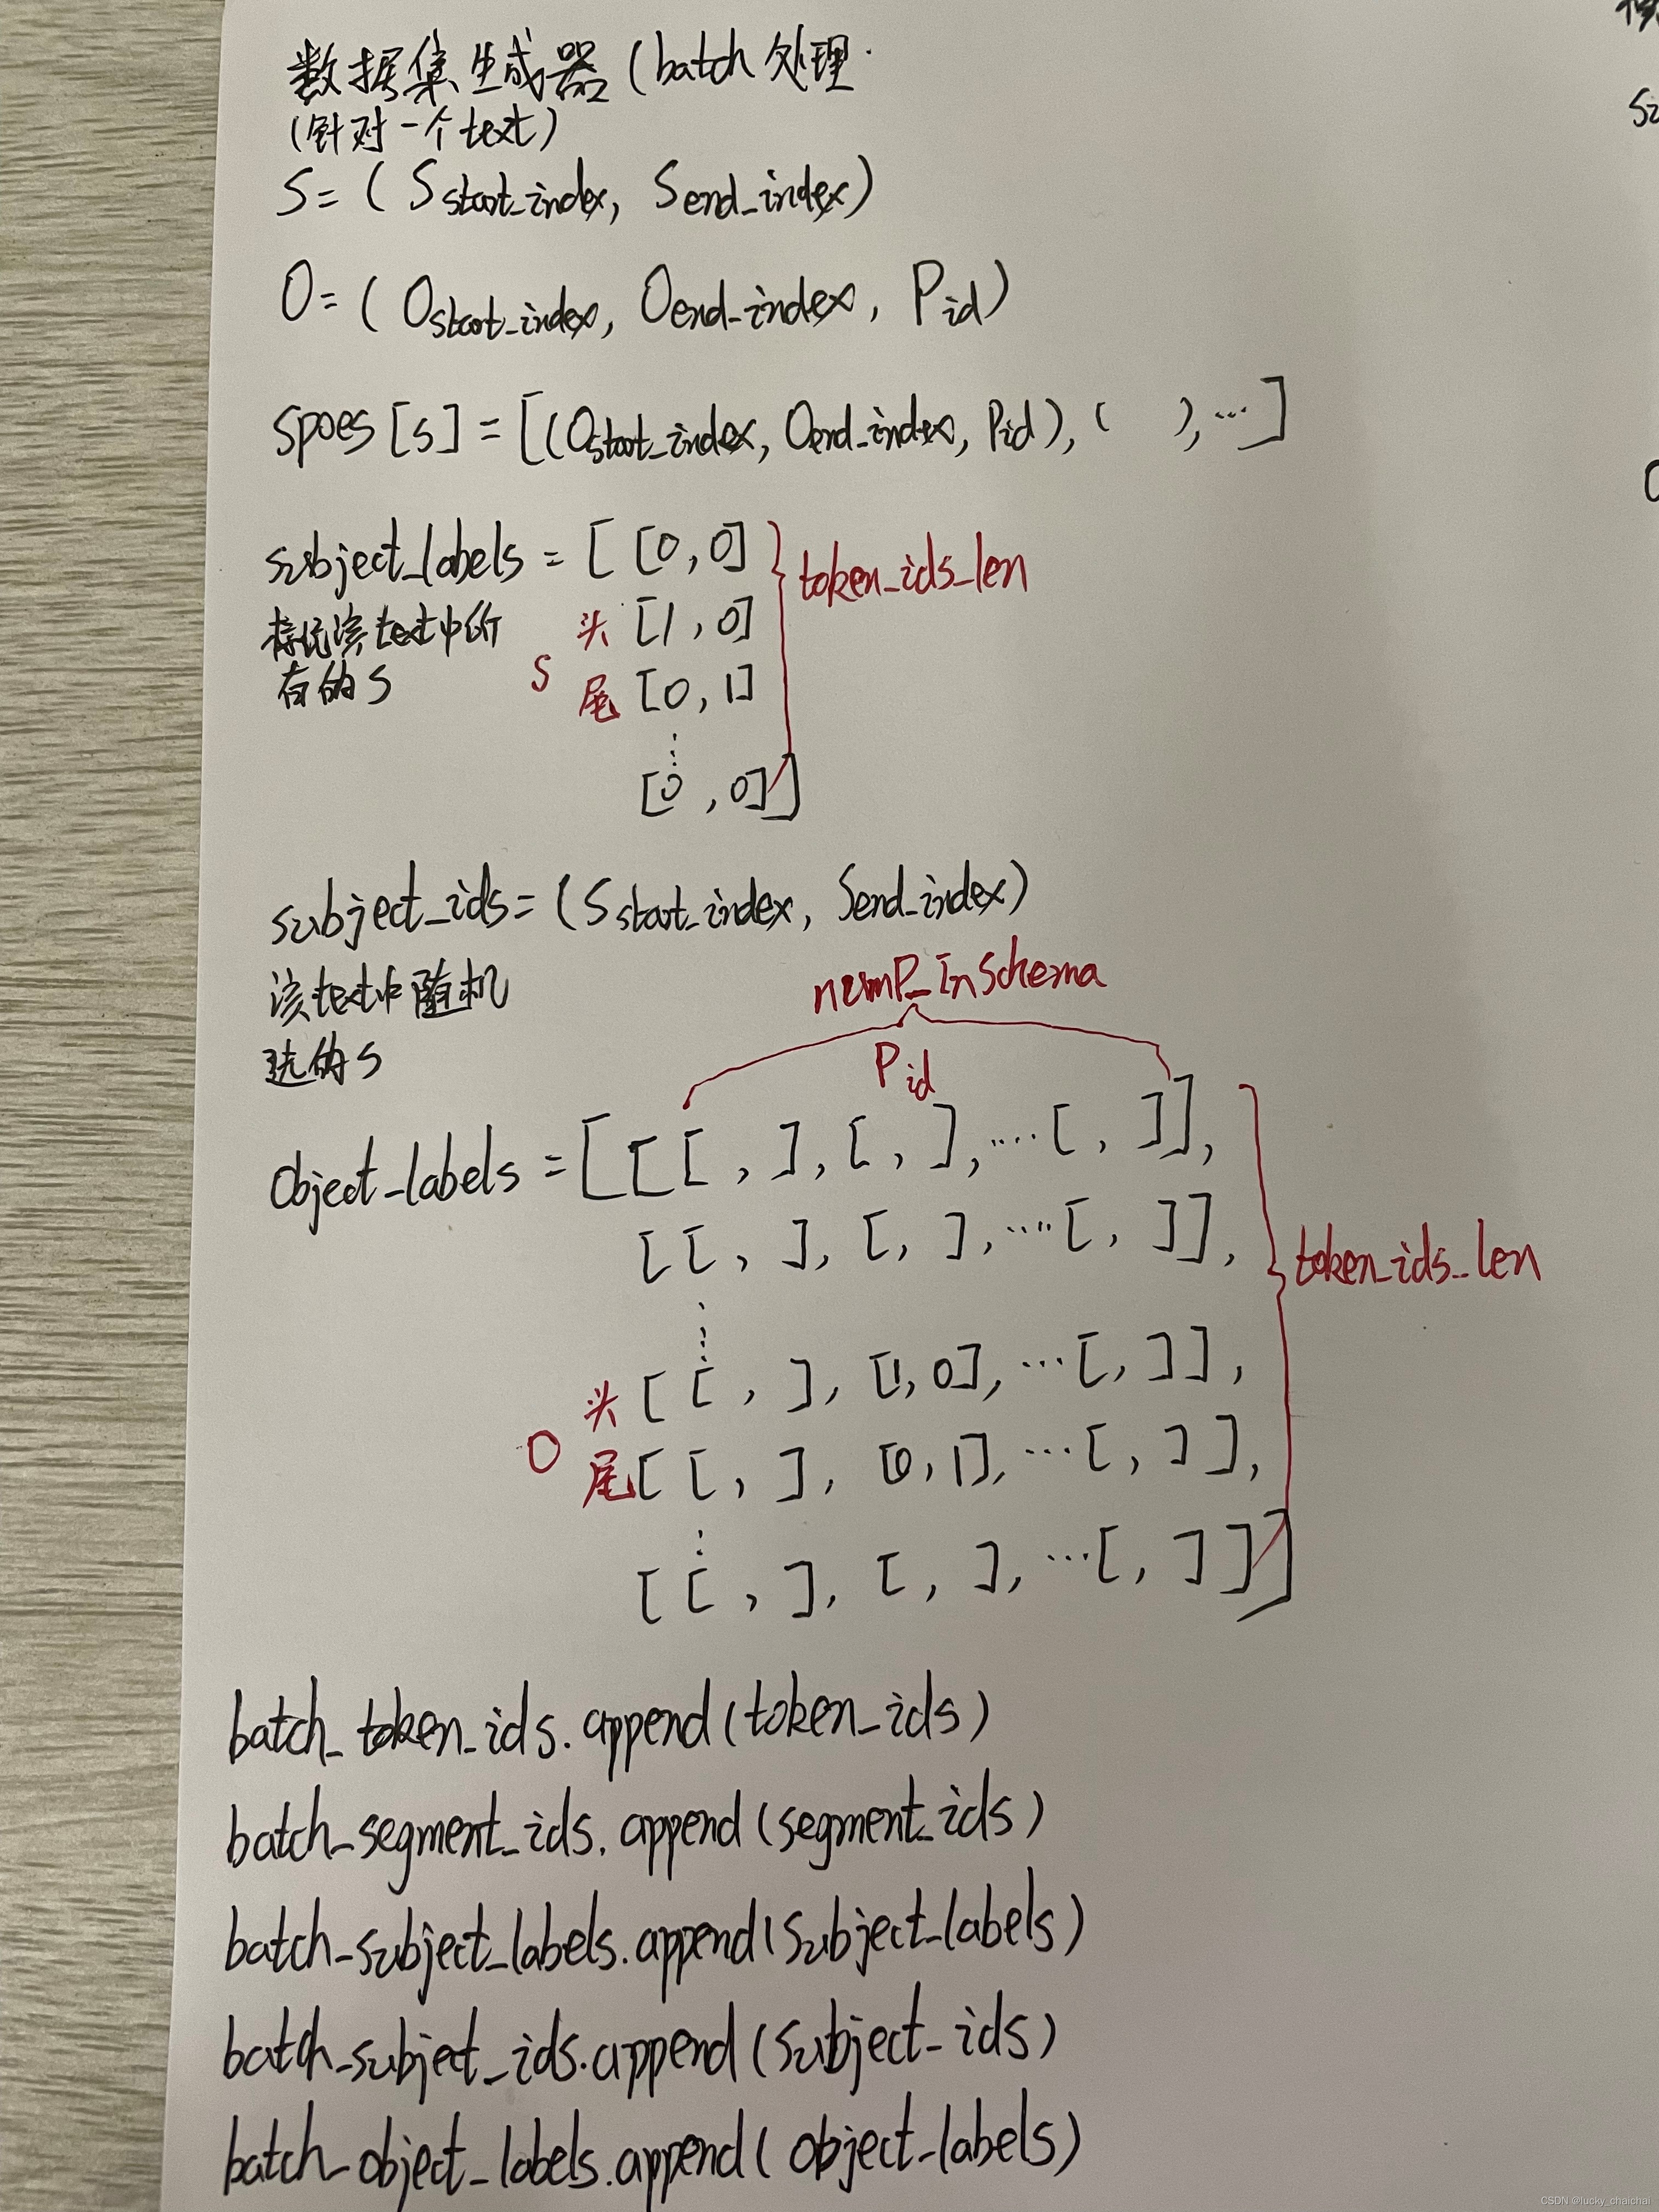 数据集生成器(batch 处理.
(针对一个text)
S=(S start_index, S end_index)
O=(O start_index, O end_index, P id)
spoes[s]=[(O start_index, O end_index, P id), ( ),…]
subject_labels = [ [0,0]
token_ids_len
标记该text中所有的S
S
头 [1,0]
尾 [0,1]
⋮
[0,0]]
subject_ids=(S start_index, S end_index)
该text中随机
选的S
numP_InSchema
P id
object_labels =[[[ , ], [ , ],….[ , ]],
[[ , ], [ , ],….[ , ]],
token_ids_len
⋮
O
头 [[ , ], [1,0],…[ , ]],
尾 [[ , ], [0,1],…[ , ]],
⋮
[[ , ], [ , ],…[ , ]]]
batch_token_ids.append(token_ids)
batch_segment_ids.append(segment_ids)
batch_subject_labels.append(subject_labels)
batch_subject_ids.append(subject_ids)
batch_object_labels.append(object_labels)
CSDN @lucky_chaichai